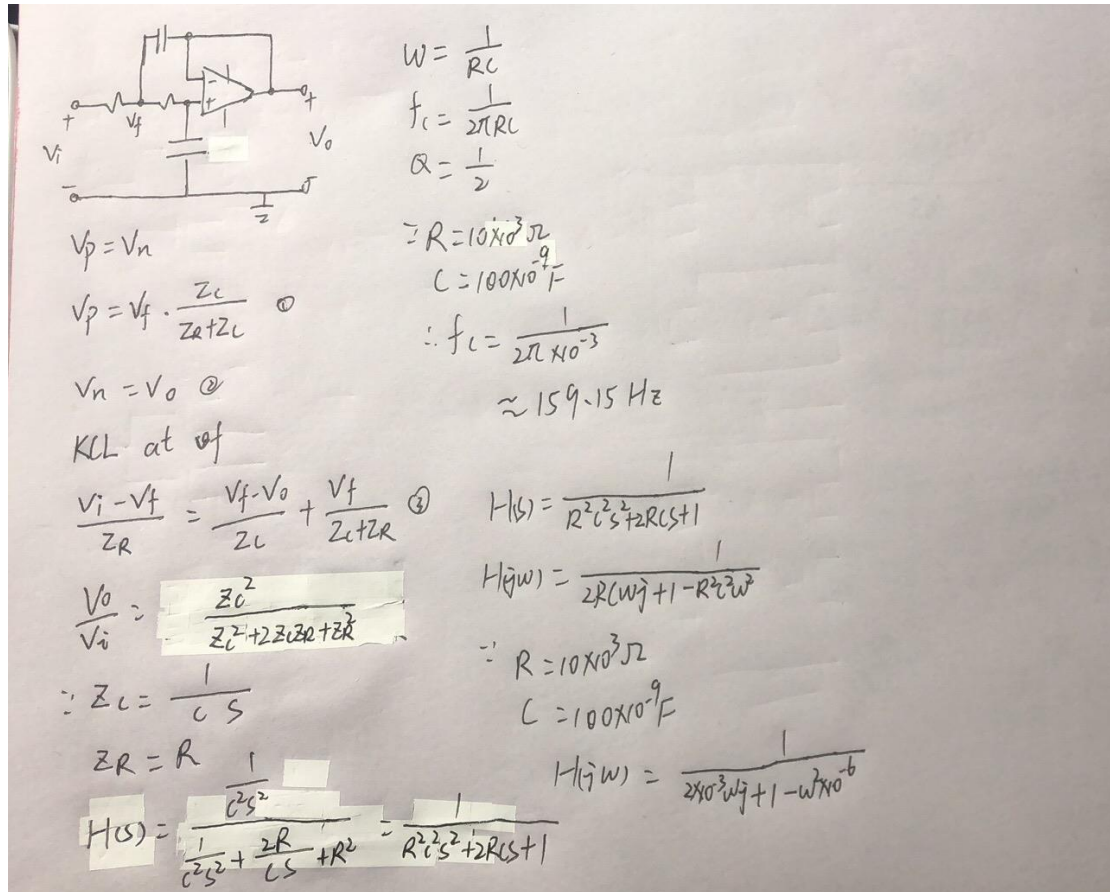 Vi
+
-
Vf
-
+
+
Vo
-
Vp = Vn
Vp = Vf · Zc / (ZR+Zc) ①
Vn = Vo ②
KCL at vf
(Vi - Vf) / ZR = (Vf - Vo) / Zc + Vf / (Zc+ZR) ③
Vo / Vi = Zc² / (Zc²+2ZcZR+ZR²)
∵ Zc = 1 / (C S)
ZR = R
H(s) = (1 / (C²S²)) / (1 / (C²S²) + 2R / (CS) + R²) = 1 / (R²C²S²+2RCS+1)
W = 1 / (RC)
fc = 1 / (2πRC)
Q = 1 / 2
∵ R = 10×10³Ω
C = 100×10⁻⁹F
∴ fc = 1 / (2π×10⁻³)
≈ 159.15 Hz
H(s) = 1 / (R²C²S²+2RCS+1)
H(jw) = 1 / (2RCWj+1-R²C²W²)
∵ R = 10×10³Ω
C = 100×10⁻⁹F
H(jw) = 1 / (2×10⁻³Wj+1-W²×10⁻⁶)